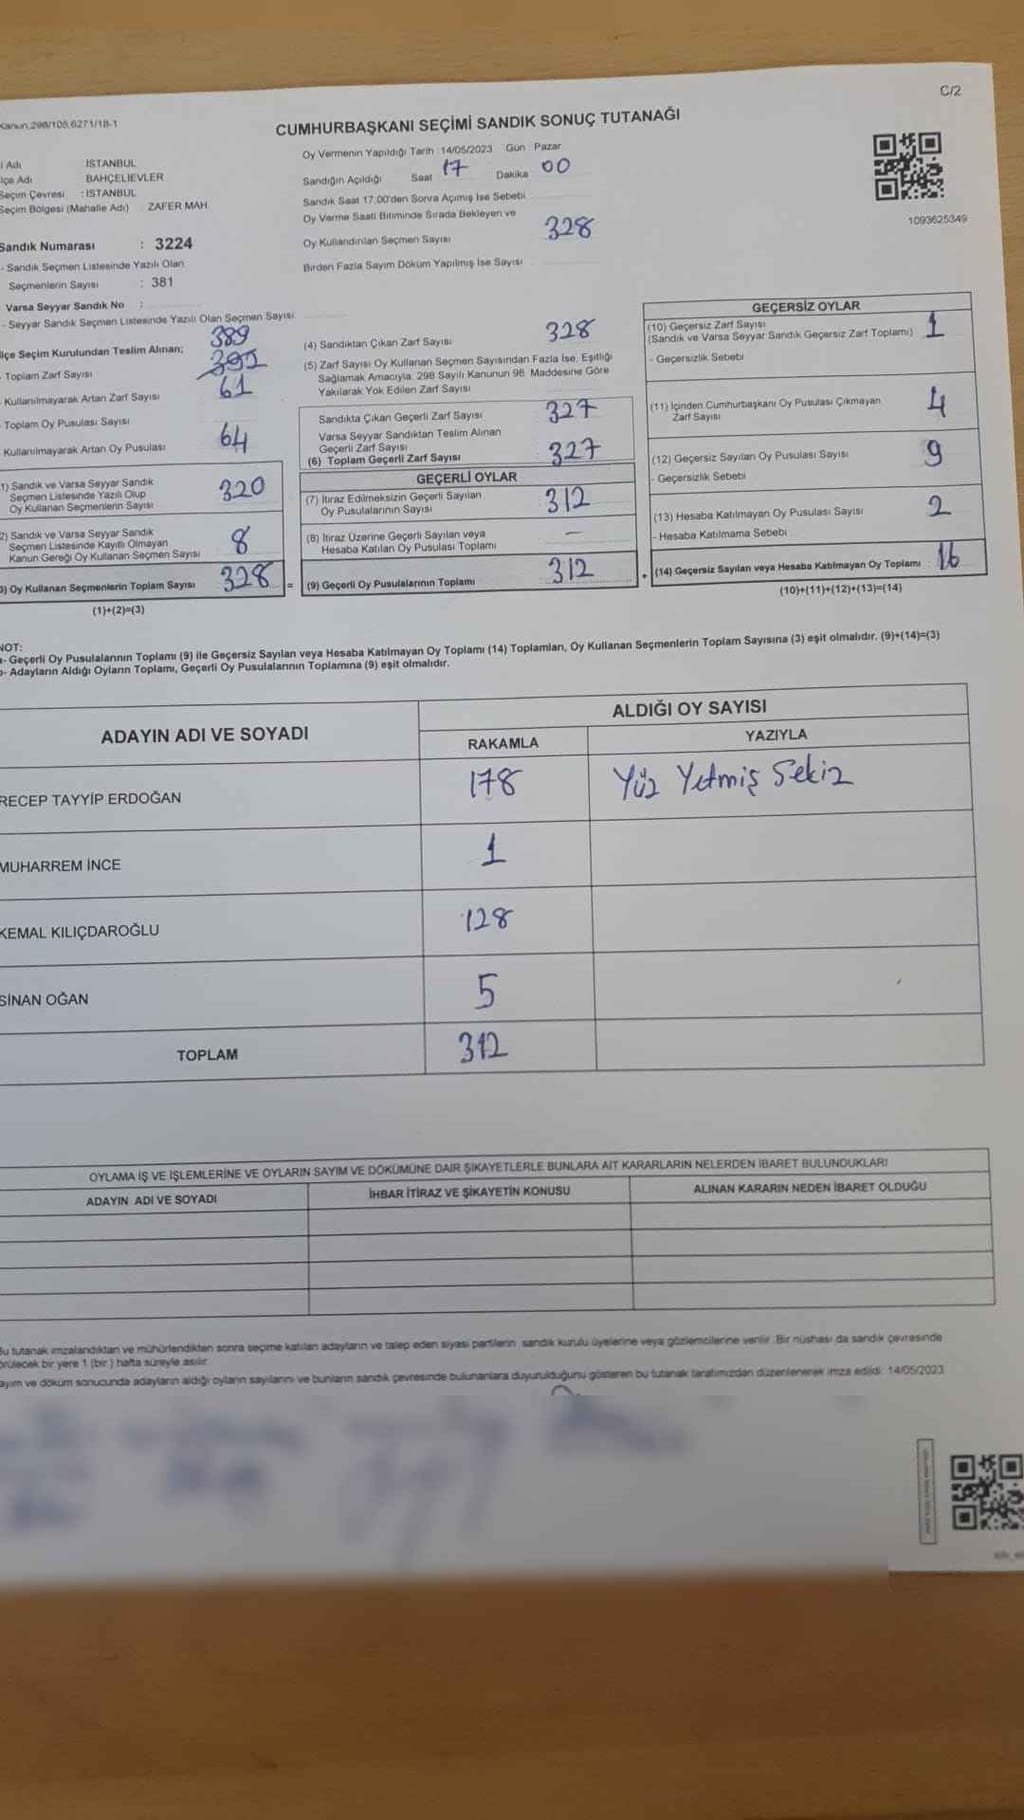 C/2
Kanun,298/105,6271/18-1
CUMHURBAŞKANI SEÇİMİ SANDIK SONUÇ TUTANAĞI
l Adı İSTANBUL
lçe Adı BAHÇELİEVLER
Seçim Çevresi : İSTANBUL
Seçim Bölgesi (Mahalle Adı) ZAFER MAH.
Sandık Numarası : 3224
- Sandık Seçmen Listesinde Yazılı Olan
Seçmenlerin Sayısı : 381
Varsa Seyyar Sandık No :
- Seyyar Sandık Seçmen Listesinde Yazılı Olan Seçmen Sayısı
389
lçe Seçim Kurulundan Teslim Alınan;
Toplam Zarf Sayısı
Kullanılmayarak Artan Zarf Sayısı 61
Toplam Oy Pusulası Sayısı
Kullanılmayarak Artan Oy Pusulası 64
1) Sandık ve Varsa Seyyar Sandık
Seçmen Listesinde Yazılı Olup
Oy Kullanan Seçmenlerin Sayısı 320
2) Sandık ve Varsa Seyyar Sandık
Seçmen Listesinde Kayıtlı Olmayan
Kanun Gereği Oy Kullanan Seçmen Sayısı 8
3) Oy Kullanan Seçmenlerin Toplam Sayısı 328 =
(1)+(2)=(3)
Oy Vermenin Yapıldığı Tarih : 14/05/2023 Gün : Pazar
Sandığın Açıldığı Saat 17 Dakika 00
Sandık Saat 17:00'den Sonra Açımış İse Sebebi
Oy Verme Saati Bitiminde Sırada Bekleyen ve
Oy Kullandırılan Seçmen Sayısı 328
Birden Fazla Sayım Döküm Yapılmış İse Sayısı
(4) Sandıktan Çıkan Zarf Sayısı 328
(5) Zarf Sayısı Oy Kullanan Seçmen Sayısından Fazla İse, Eşitliği
Sağlamak Amacıyla, 298 Sayılı Kanunun 98. Maddesine Göre
Yakılarak Yok Edilen Zarf Sayısı
Sandıkta Çıkan Geçerli Zarf Sayısı 327
Varsa Seyyar Sandıktan Teslim Alınan
Geçerli Zarf Sayısı
(6) Toplam Geçerli Zarf Sayısı 327
GEÇERLİ OYLAR
(7) İtiraz Edilmeksizin Geçerli Sayılan
Oy Pusulalarının Sayısı 312
(8) İtiraz Üzerine Geçerli Sayılan veya
Hesaba Katılan Oy Pusulası Toplamı —
(9) Geçerli Oy Pusulalarının Toplamı 312 +
1093625349
GEÇERSİZ OYLAR
(10) Geçersiz Zarf Sayısı
(Sandık ve Varsa Seyyar Sandık Geçersiz Zarf Toplamı) 1
- Geçersizlik Sebebi
(11) İçinden Cumhurbaşkanı Oy Pusulası Çıkmayan
Zarf Sayısı 4
(12) Geçersiz Sayılan Oy Pusulası Sayısı 9
- Geçersizlik Sebebi
(13) Hesaba Katılmayan Oy Pusulası Sayısı 2
- Hesaba Katılmama Sebebi
(14) Geçersiz Sayılan veya Hesaba Katılmayan Oy Toplamı : 16
(10)+(11)+(12)+(13)=(14)
NOT:
a- Geçerli Oy Pusulalarının Toplamı (9) ile Geçersiz Sayılan veya Hesaba Katılmayan Oy Toplamı (14) Toplamları, Oy Kullanan Seçmenlerin Toplam Sayısına (3) eşit olmalıdır. (9)+(14)=(3)
b- Adayların Aldığı Oyların Toplamı, Geçerli Oy Pusulalarının Toplamına (9) eşit olmalıdır.
ADAYIN ADI VE SOYADI ALDIĞI OY SAYISI
RAKAMLA YAZIYLA
RECEP TAYYİP ERDOĞAN 178 Yüz Yetmiş Sekiz
MUHARREM İNCE 1
KEMAL KILIÇDAROĞLU 128
SİNAN OĞAN 5
TOPLAM 312
OYLAMA İŞ VE İŞLEMLERİNE VE OYLARIN SAYIM VE DÖKÜMÜNE DAİR ŞİKAYETLERLE BUNLARA AİT KARARLARIN NELERDEN İBARET BULUNDUKLARI
ADAYIN ADI VE SOYADI İHBAR İTİRAZ VE ŞİKAYETİN KONUSU ALINAN KARARIN NEDEN İBARET OLDUĞU
Bu tutanak imzalandıktan ve mühürlendikten sonra seçime katılan adayların ve talep eden siyasi partilerin sandık kurulu üyelerine veya gözlemcilerine verilir. Bir nüshası da sandık çevresinde
örülecek bir yere 1 (bir) hafta süreyle asılır.
ayım ve döküm sonucunda adayların aldığı oyların sayılarını ve bunların sandık çevresinde bulunanlara duyurulduğunu gösteren bu tutanak tarafımızdan düzenlenerek imza edildi. 14/05/2023